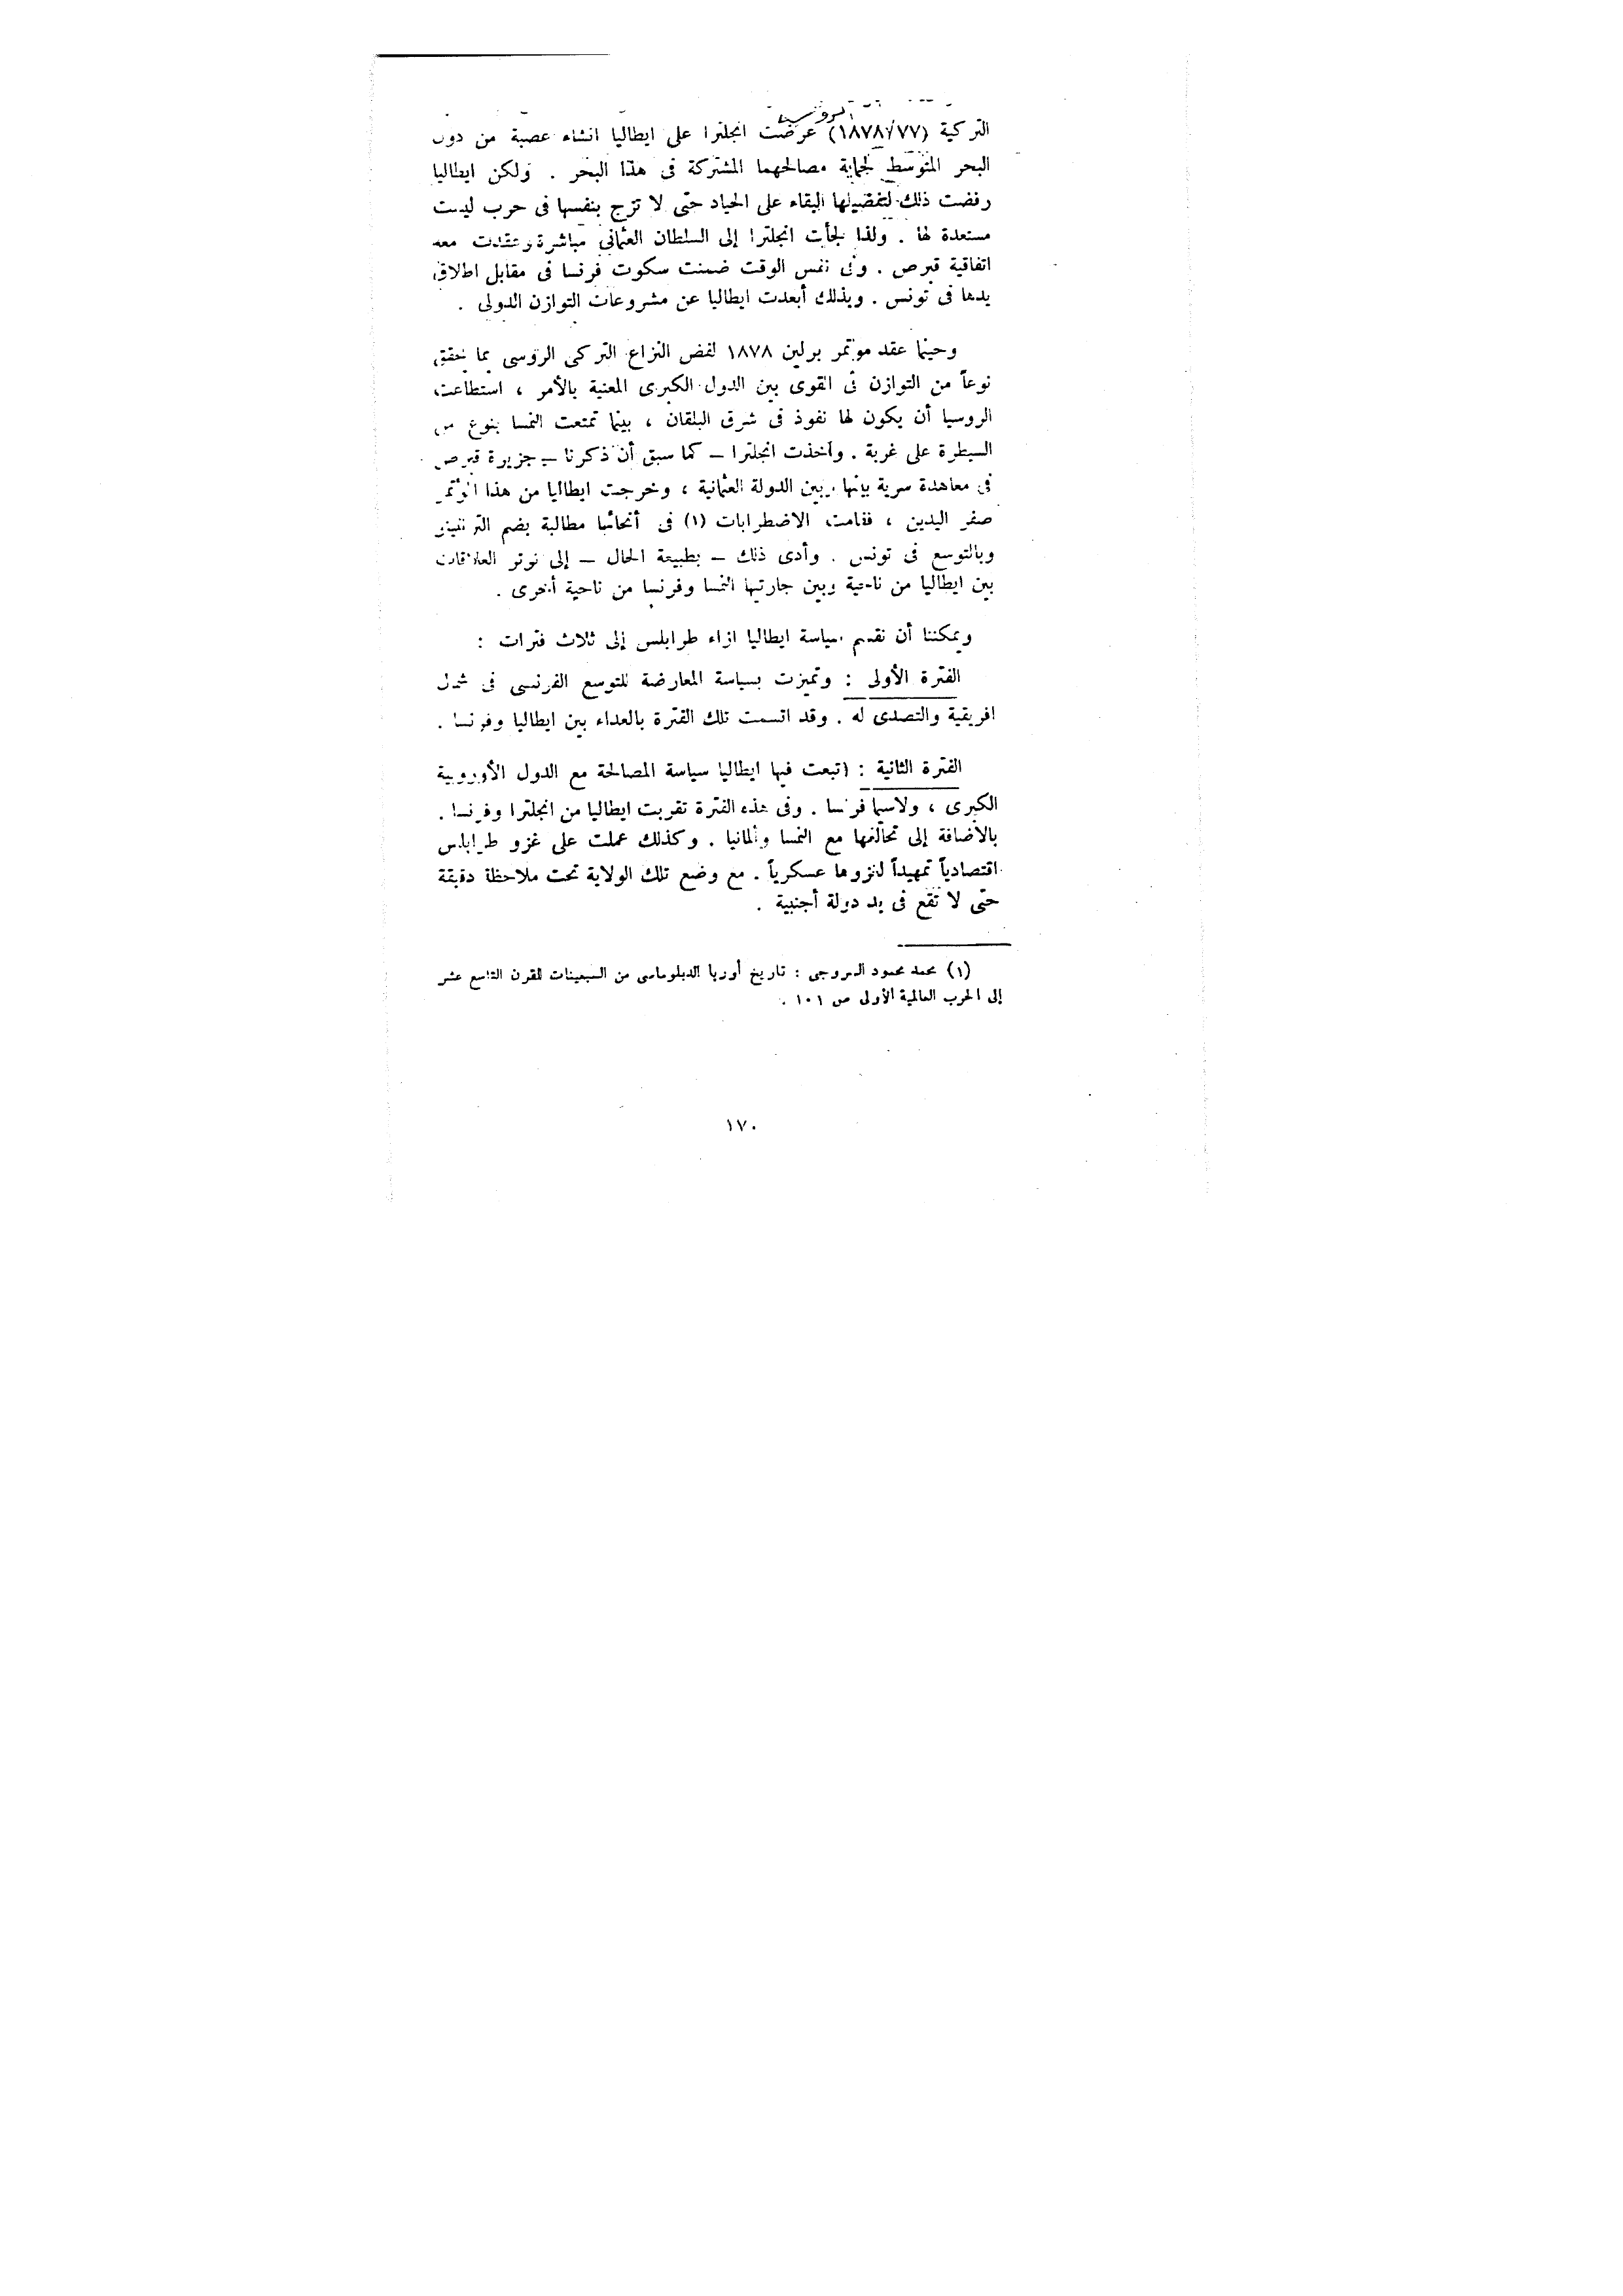 التركية (١٨٧٨/٧٧) عرضت انجلترا على ايطاليا انشاء عصبة من دول
البحر المتوسط لحماية مصالحهما المشتركة فى هذا البحر . ولكن ايطاليا
رفضت ذلك لتفضيلها البقاء على الحياد حتى لا تزج بنفسها فى حرب ليست
مستعدة لها . ولذا لجأت انجلترا إلى السلطان العثمانى مباشرة وعقدت معه
اتفاقية قبرص . وفى نفس الوقت ضمنت سكوت فرنسا فى مقابل اطلاق
يدها فى تونس . وبذلك أبعدت ايطاليا عن مشروعات التوازن الدولى .
وحينما عقد مؤتمر برلين ١٨٧٨ لفض النزاع التركى الروسى بما يحقق
نوعاً من التوازن فى القوى بين الدول الكبرى المعنية بالأمر ، استطاعت
الروسيا أن يكون لها نفوذ فى شرق البلقان ، بينما تمتعت النمسا بنوع من
السيطرة على غربة . وأخذت انجلترا – كما سبق أن ذكرنا – جزيرة قبرص
فى معاهدة سرية بينها وبين الدولة العثمانية ، وخرجت ايطاليا من هذا المؤتمر
صفر اليدين ، فقامت الاضطرابات (١) فى أنحائها مطالبة بضم الترنتينو
وبالتوسع فى تونس . وأدى ذلك – بطبيعة الحال – إلى توتر العلاقات
بين ايطاليا من ناحية وبين جارتيها النمسا وفرنسا من ناحية أخرى .
ويمكننا أن نقسم سياسة ايطاليا ازاء طرابلس إلى ثلاث فترات :
الفترة الأولى : وتميزت بسياسة المعارضة للتوسع الفرنسى فى شمال
افريقية والتصدى له . وقد اتسمت تلك الفترة بالعداء بين ايطاليا وفرنسا .
الفترة الثانية : اتبعت فيها ايطاليا سياسة المصالحة مع الدول الأوروبية
الكبرى ، ولاسيما فرنسا . وفى هذه الفترة تقربت ايطاليا من انجلترا وفرنسا .
بالاضافة إلى تحالفها مع النمسا وألمانيا . وكذلك عملت على غزو طرابلس
اقتصادياً تمهيداً لغزوها عسكرياً . مع وضع تلك الولاية تحت ملاحظة دقيقة
حتى لا تقع فى يد دولة أجنبية .
(١) محمد محمود السروجى : تاريخ أوربا الدبلوماسى من السبعينات للقرن التاسع عشر
إلى الحرب العالمية الأولى ص ١٠١ .
١٧٠